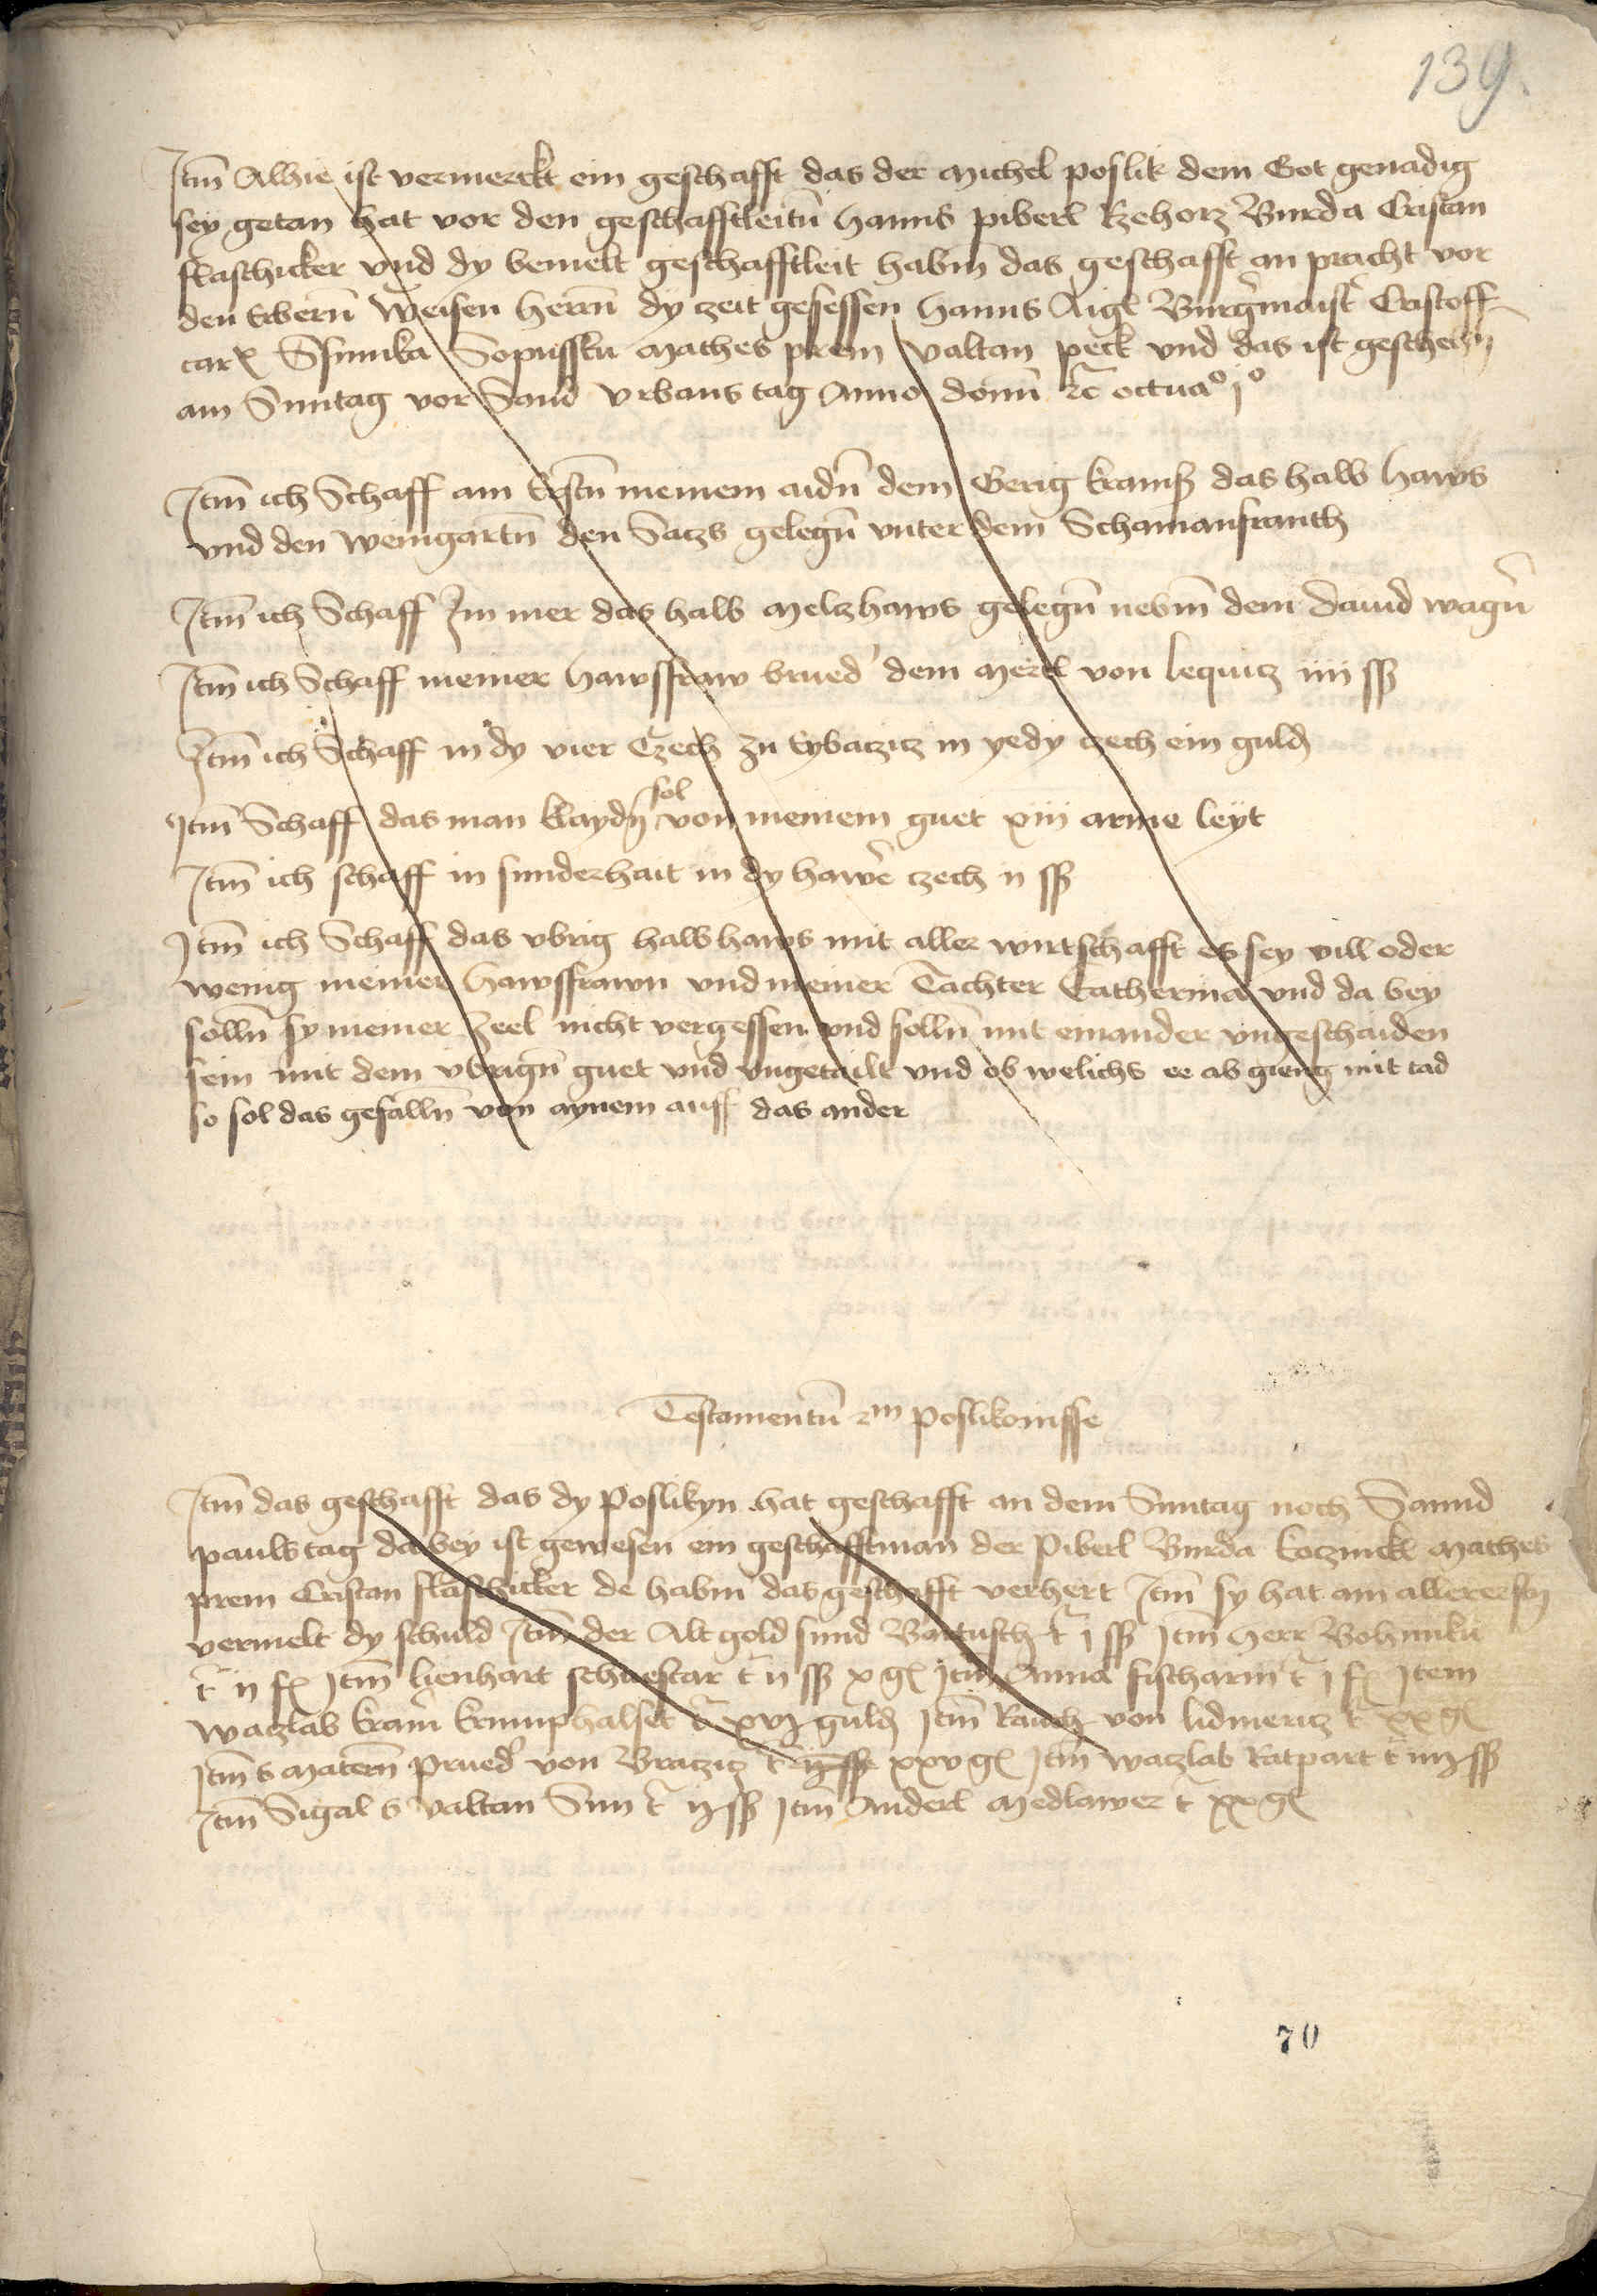 139.
Itm̄ Alhie ist vermerckt ein geschafft das der Michel poslik dem Got genadig
sey getan hat vor den geschafftleitn̄ Hanns piberl Rzehorz Burda Cristan
flaschicker vnd dy bemelt geschafftleit habm̄ das geschafft an pracht vor
den Erbern̄ Weisen herrn̄ dy zeit gesessen Hanns Aigl Burgermaist̓ Cristoff
Ssimka Sopusska Mathes prem valtan peck vnd das ist geschehn
am Suntag vor Sand vrbans tag Anno domī octua° j°
Itm̄ ich Schaff am Erstn̄ meinem aidn̄ dem Gerig kramß das halb Haws
vnd den Weingartn̄ den Sacz gelegn̄ vnter dem Schamanfranth
Itm̄ ich Schaff Im mer das halb Melczhaws gelegn̄ nebm̄ dem Dauid wagn̄
Itm̄ ich Schaff meiner Hawsfraw brued̓ dem Mertl von lequicz iiij ss
Itm̄ ich Schaff in dy vier Czech zu Eybaczicz in yedy czech ein guld
Itm̄ Schaff das man klaydn̄ sol von meinem guet xiij arme leyt
Itm̄ ich schaff in sunderhait in dy hawer̓ czech ij ss
Itm̄ ich Schaff das vbrig halb haws mit aller wirtschafft es sey vill oder
wenig meiner Hawsfrawn vnd meiner Tachter Catherina vnd da bey
solln̄ sy meiner Zeel nicht vergessen vnd solln̄ mit einander vngeschaiden
sein mit dem vbrign̄ guet vnd vngetailt vnd ob welichs ee ab gieng mit tad
so sol das gefalln̄ von aynem auff das ander
Testamentū poslikonisse
Itm̄ das geschafft das dy Poslikyn hat geschafft an dem Suntag noch Sannd
pauls tag da bey ist gewesen ein geschafftman der Piberl Burda Mathes
prem Cristan flaschicker de habm̄ das geschafft verhert Itm̄ sy hat am allererstn
vermelt dy schuld Itm̄ der Alt gold smid Bartusch t̓ j ss Itm̄ herr Bohunku
t̓ ij Itm̄ lienhart schuestar t̓ ij ss x gl Itm̄ Anna fischarin t̓ j Item
Waczlab kram̓ krumphalset t̓ xvj guld Itm̄ Rauch von lidmericz t̓ xx gl
Itm̄ s matern̄ prued̓ von Braczicz t̓ xxv gl Itm̄ waczlab Ratpart t̓ iiij ss
Itm̄ Sigal s valtan Sun t̓ ij ss Itm̄ Anderl Medlawer t̓ xx gl
70